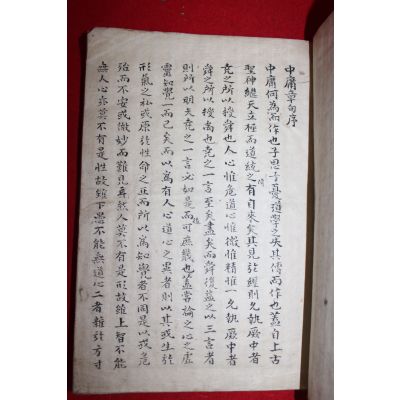 中庸章句序
中庸何為而作也子思子憂道學之失其傳而作也蓋自上古
聖神繼天立極而道統之有自來矣其見於經則允執厥中者
堯之所以授舜也人心惟危道心惟微惟精惟一允執厥中者
舜之所以授禹也堯之一言至矣盡矣而舜復益之以三言者
則所以明夫堯之一言必如是而可庶幾也蓋嘗論之心之虛
靈知覺一而已矣而以為有人心道心之異者則以其或生於
形氣之私或原於性命之正而所以為知覺者不同是以或危
殆而不安或微妙而難見耳然人莫不有是形故雖上智不能
無人心亦莫不有是性故雖下愚不能無道心二者雜於方寸